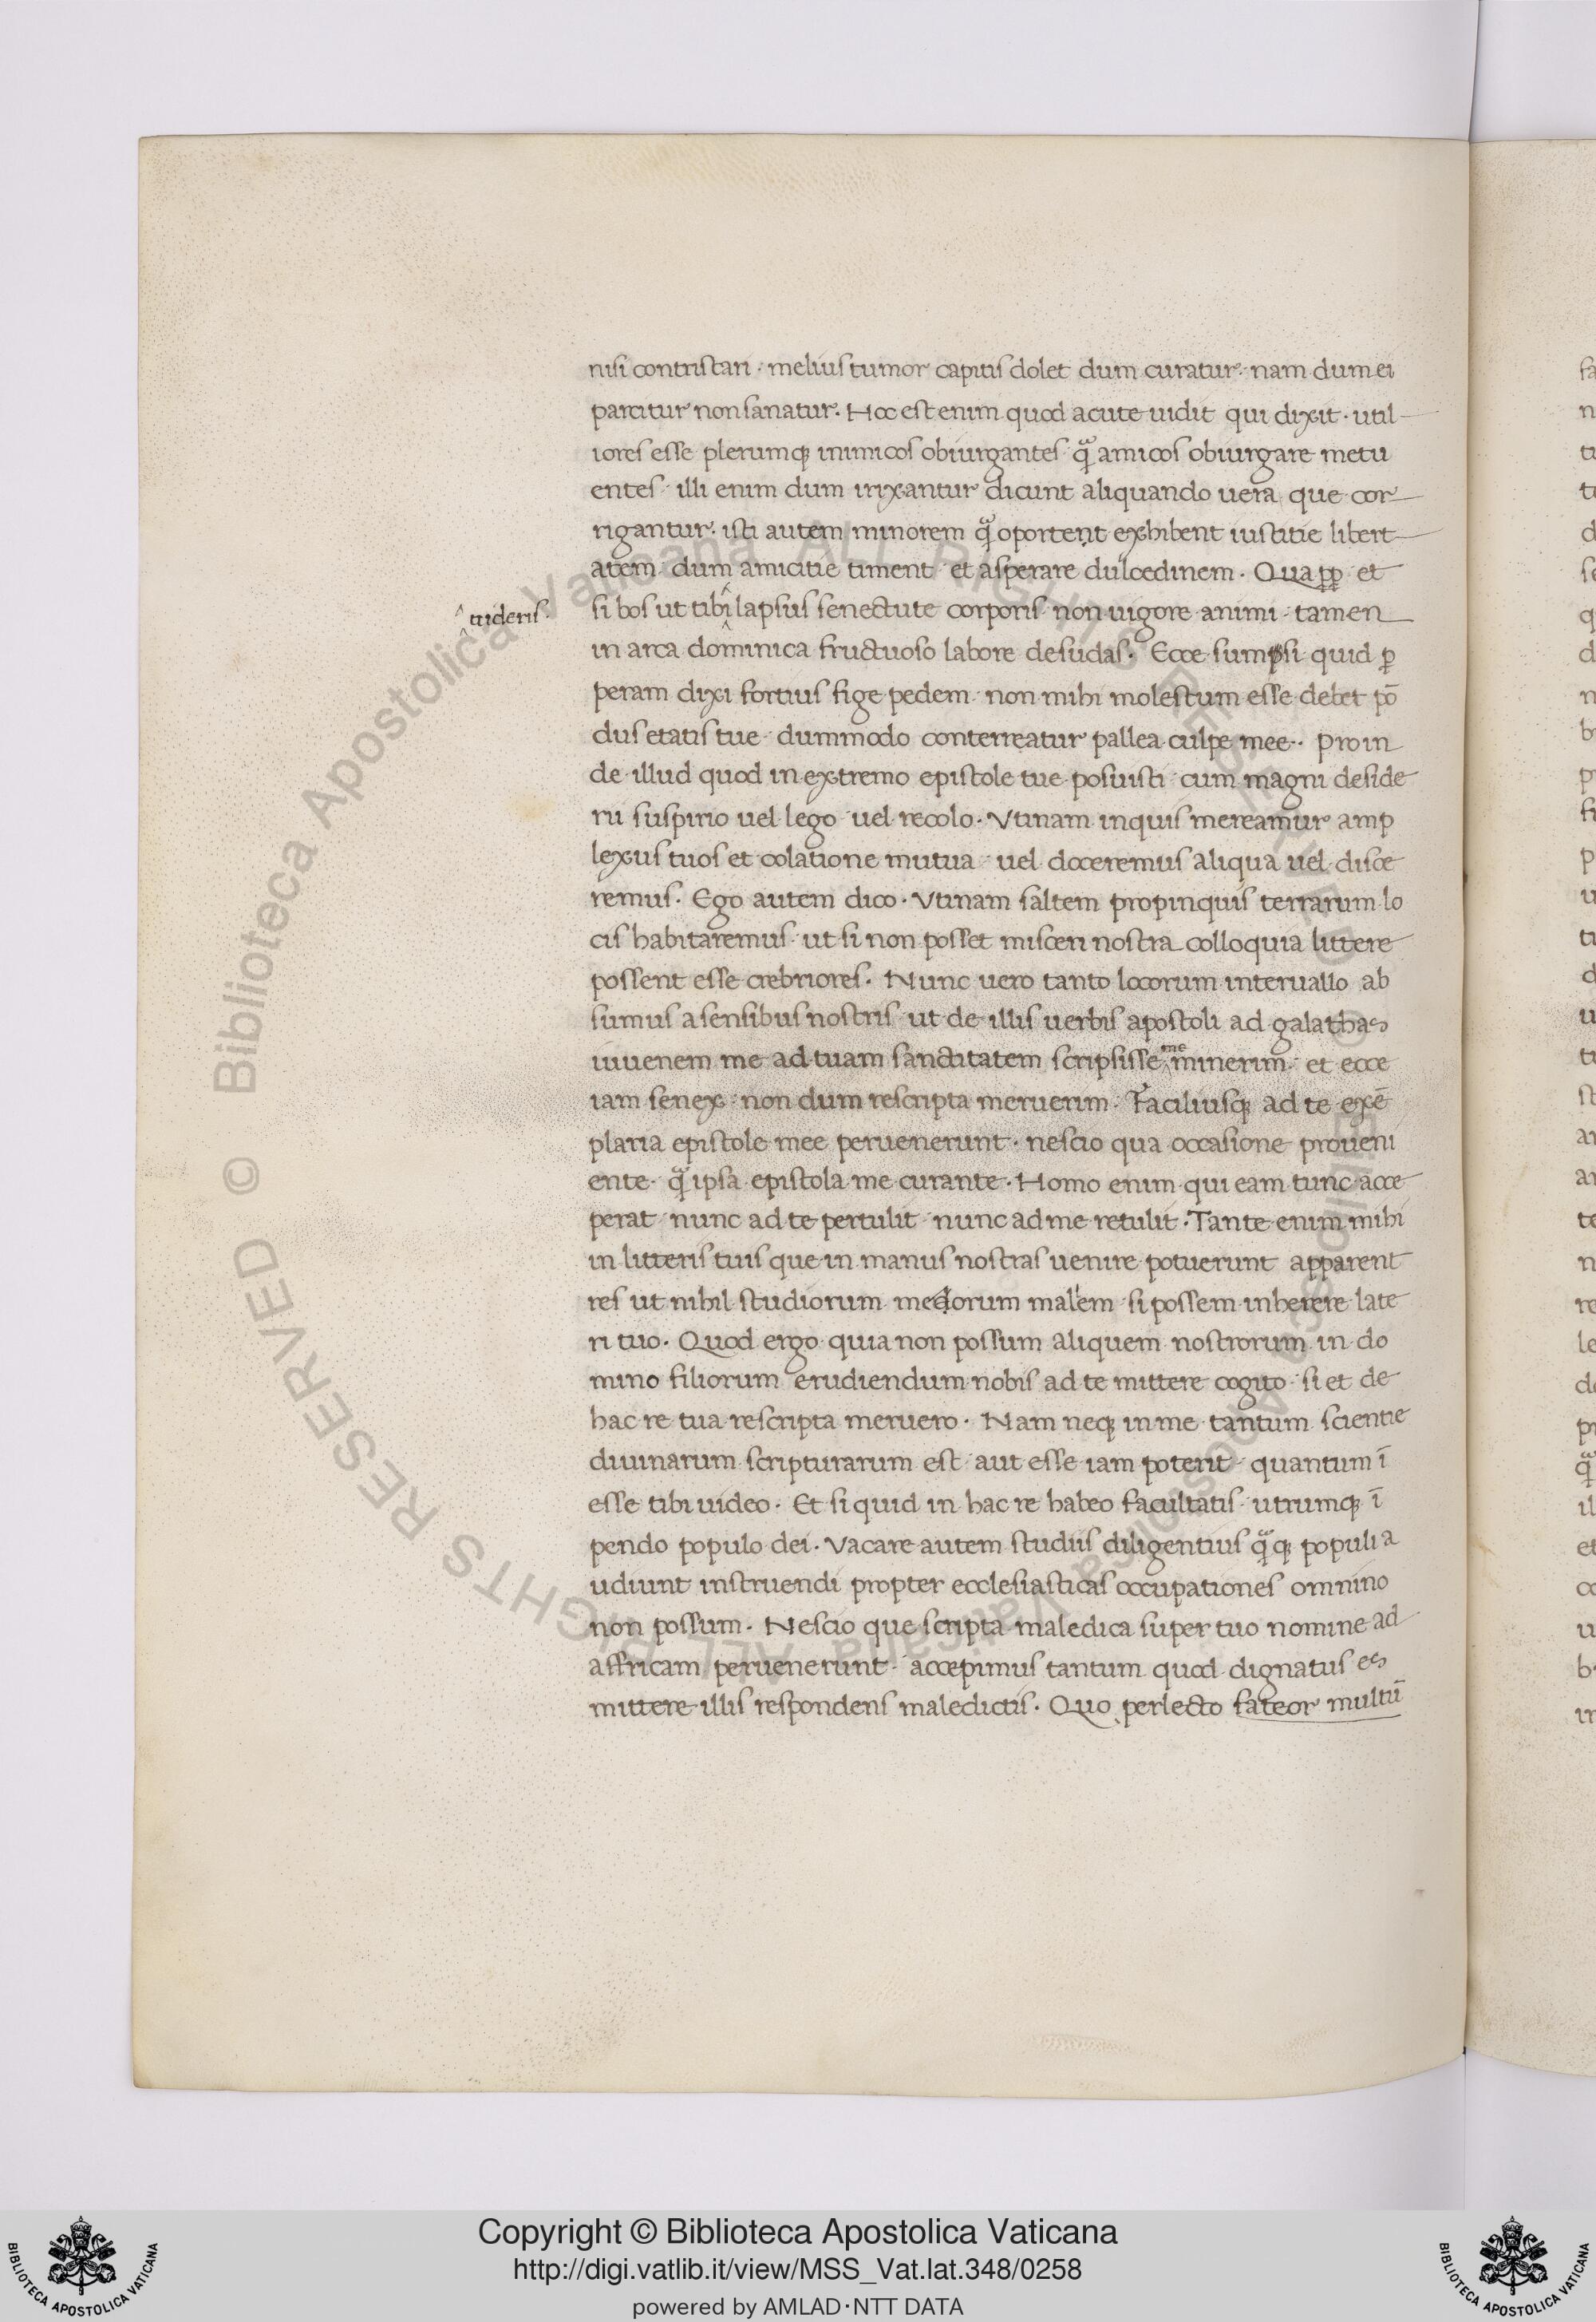 nisi contristari · melius tumor capitis dolet dum curatur · nam dum ei
parcitur non sanatur · Hoc est enim quod acute uidit qui dixit · util
iores esse plerumqꝫ inimicos obiurgantes q̃ amicos obiurgare metu
entes · illi enim dum irixantur dicunt aliquando uera que cor
rigantur · isti autem minorem q̃ oportent exhibent iustitie libert
atem dum amicitie timent et asperare dulcedinem · Qua ꝓꝑ et
^ uideris ·
si bos ut tibi ^ lapsus senectute corporis non uigore animi · tamen
in arca dominica fructuoso labore desudas · Ecce sumpsi quid ꝑ
peram dixi fortius fige pedem · non mihi molestum esse debet põ
dus etatis tue dummodo conterreatur pallea culpe mee · Proin
de illud quod in extremo epistole tue posuisti cum magni deside
rii suspirio uel lego uel recolo · Vtinam inquis mereamur amp
lexus tuos et colatione mutua uel doceremus aliqua uel disce
remus · Ego autem dico · Vtinam saltem propinquis terrarum lo
cis habitaremus · ut si non posset misceri nostra colloquia littere
possent esse crebriores · Nunc uero tanto locorum interuallo ab
sumus a sensibus nostris ut de illis uerbis apostoli ad galathas
iuuenem me ad tuam sanctitatem scripsisse me minerim · et ecce
iam senex non dum rescripta meruerim · Faciliusqꝫ ad te exẽ
plaria epistole mee peruenerunt · nescio qua occasione proueni
ente · q̃ ipsa epistola me curante · Homo enim qui eam tunc acce
perat nunc ad te pertulit nunc ad me retulit · Tante enim mihi
in litteris tuis que in manus nostras uenire potuerunt apparent
res ut nihil studiorum meorum malem si possem inherere late
ri tuo · Quod ergo quia non possum aliquem nostrorum in do
mino filiorum erudiendum nobis ad te mittere cogito · si et de
hac re tua rescripta meruero · Nam neqꝫ in me tantum scientie
diuinarum scripturarum est aut esse iam poterit quantum ĩ
esse tibi uideo · Et si quid in hac re habeo facultatis utrumqꝫ ĩ
pendo populo dei · Vacare autem studiis diligentius q̃ qꝫ populi a
udiunt instruendi propter ecclesiasticas occupationes omnino
non possum · Nescio que scripta maledica super tuo nomine ad
affricam peruenerunt · accepimus tantum quod dignatus es
mittere illis respondens maledictis · Quo perlecto fateor multũ
Copyright © Biblioteca Apostolica Vaticana
http://digi.vatlib.it/view/MSS_Vat.lat.348/0258
powered by AMLAD·NTT DATA